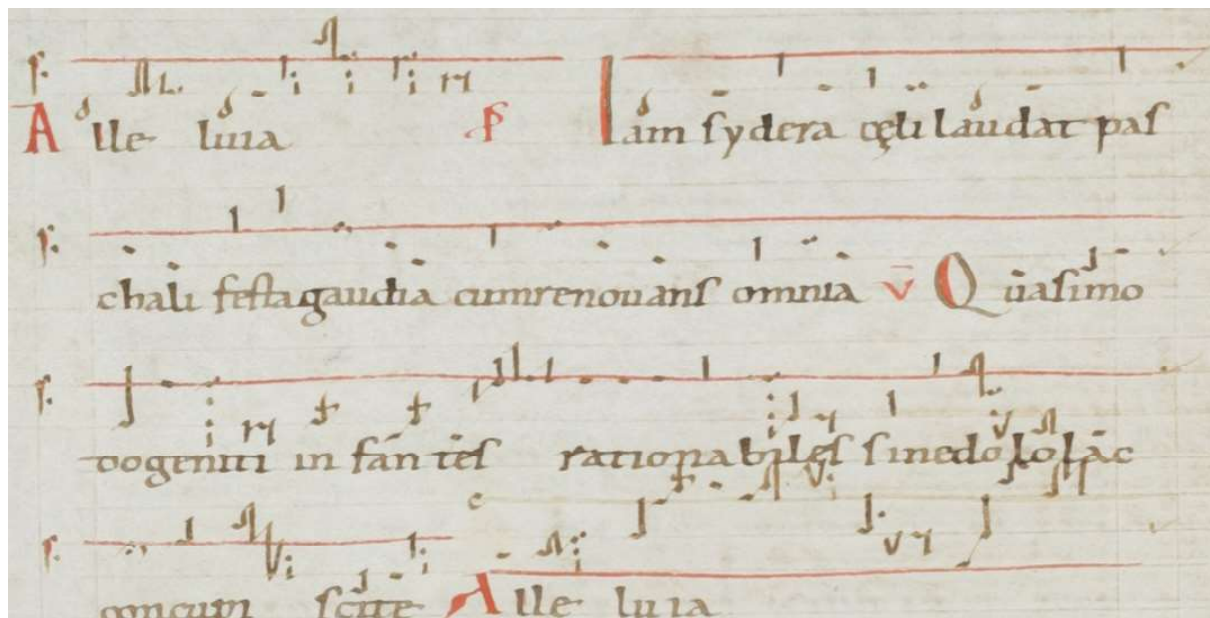 Alle luia Ps Iam sydera cęli laudāt pas
chali festa gaudia cum renouans omnia v̄ Quasi mo
do geniti in fan tes rationabiles sine dolo lac
concu pi scite Alle luia